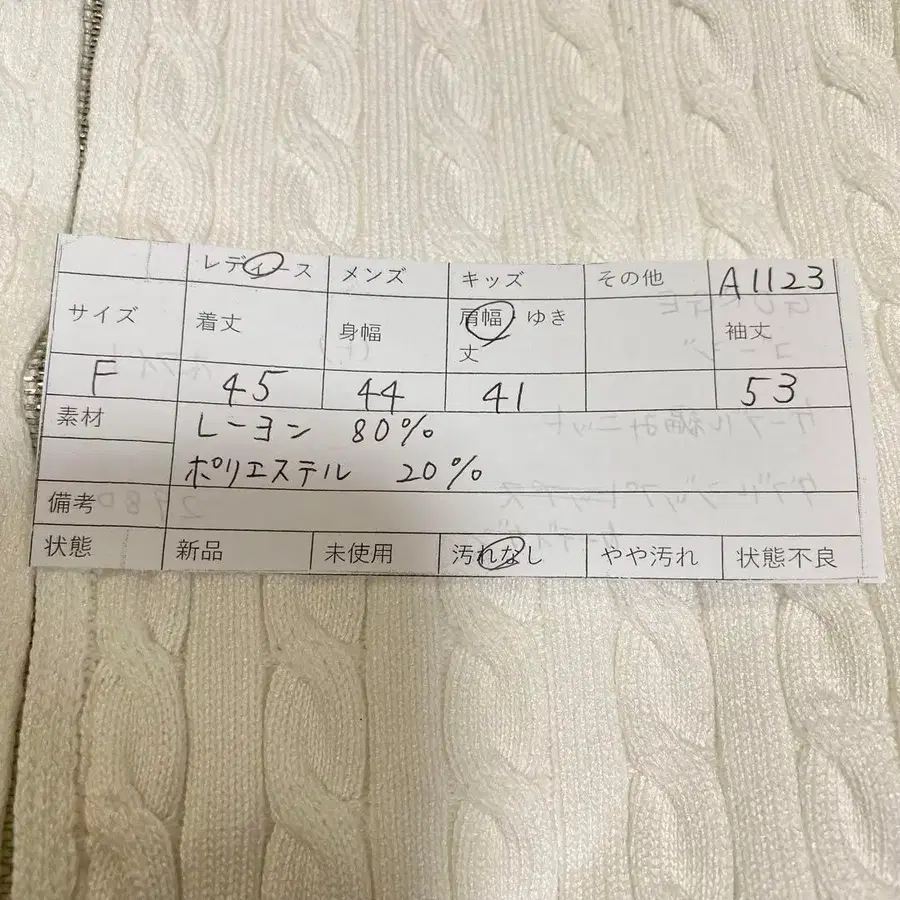 レディース メンズ キッズ その他 A1123
サイズ 着丈 身幅 肩幅・ゆき丈 袖丈
F 45 44 41 53
素材 レーヨン 80%
ポリエステル 20%
備考
状態 新品 未使用 汚れなし やや汚れ 状態不良